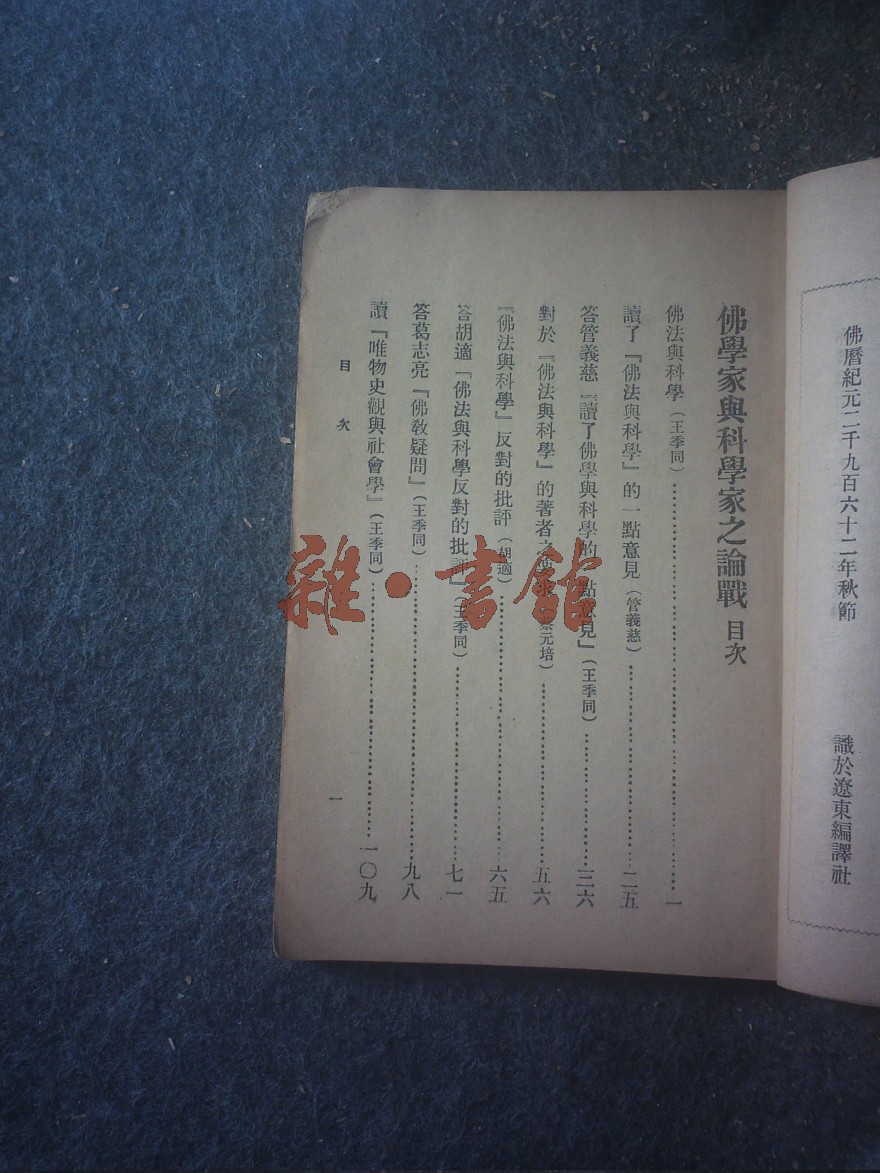 佛曆紀元二千九百六十二年秋節
識於遼東編譯社
佛學家與科學家之論戰 目次
佛法與科學(王季同)……一
讀了『佛法與科學』的一點意見(管義慈)……二五
答管義慈『讀了佛學與科學的一點意見』(王季同)……三六
對於『佛法與科學』的著者之 蔡元培)……五六
『佛法與科學』反對的批評(胡適)……六五
答胡適『佛法與科學反對的批評』(王季同)……七一
答葛志亮『佛教疑問』(王季同)……九八
讀『唯物史觀與社會學』(王季同)……一〇九
目次
一
雜·書館